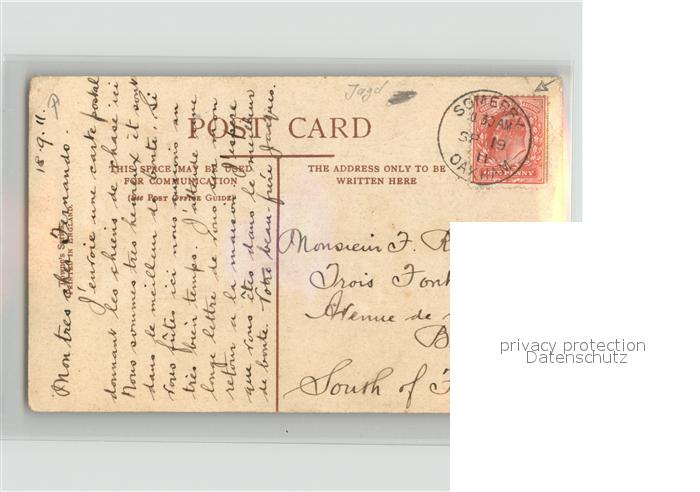 Jagd
POST CARD
THIS SPACE MAY BE USED
FOR COMMUNICATION
(See Post Office Guide)
THE ADDRESS ONLY TO BE
WRITTEN HERE
SOMERBY
SP 19
11
OAKHAM
ONE PENNY
PRINTED IN ENGLAND.
18.9.11.
Mon très cher Fernando.
J'envoie une carte postal
donnant les chiens de chasse ici
Nous sommes très heureux et sont
dans le meilleur de
vous fûtes ici nous aurions un
très bien temps. J'attend une
longe lettre de vous de mon
retour a la maison. J'espère
que vous êtes dans le meilleur
de bonte. Votre beau-frère Jacques.
Monsieur F. R
Trois Font
Avenue de
B
South of F
privacy protection
Datenschutz